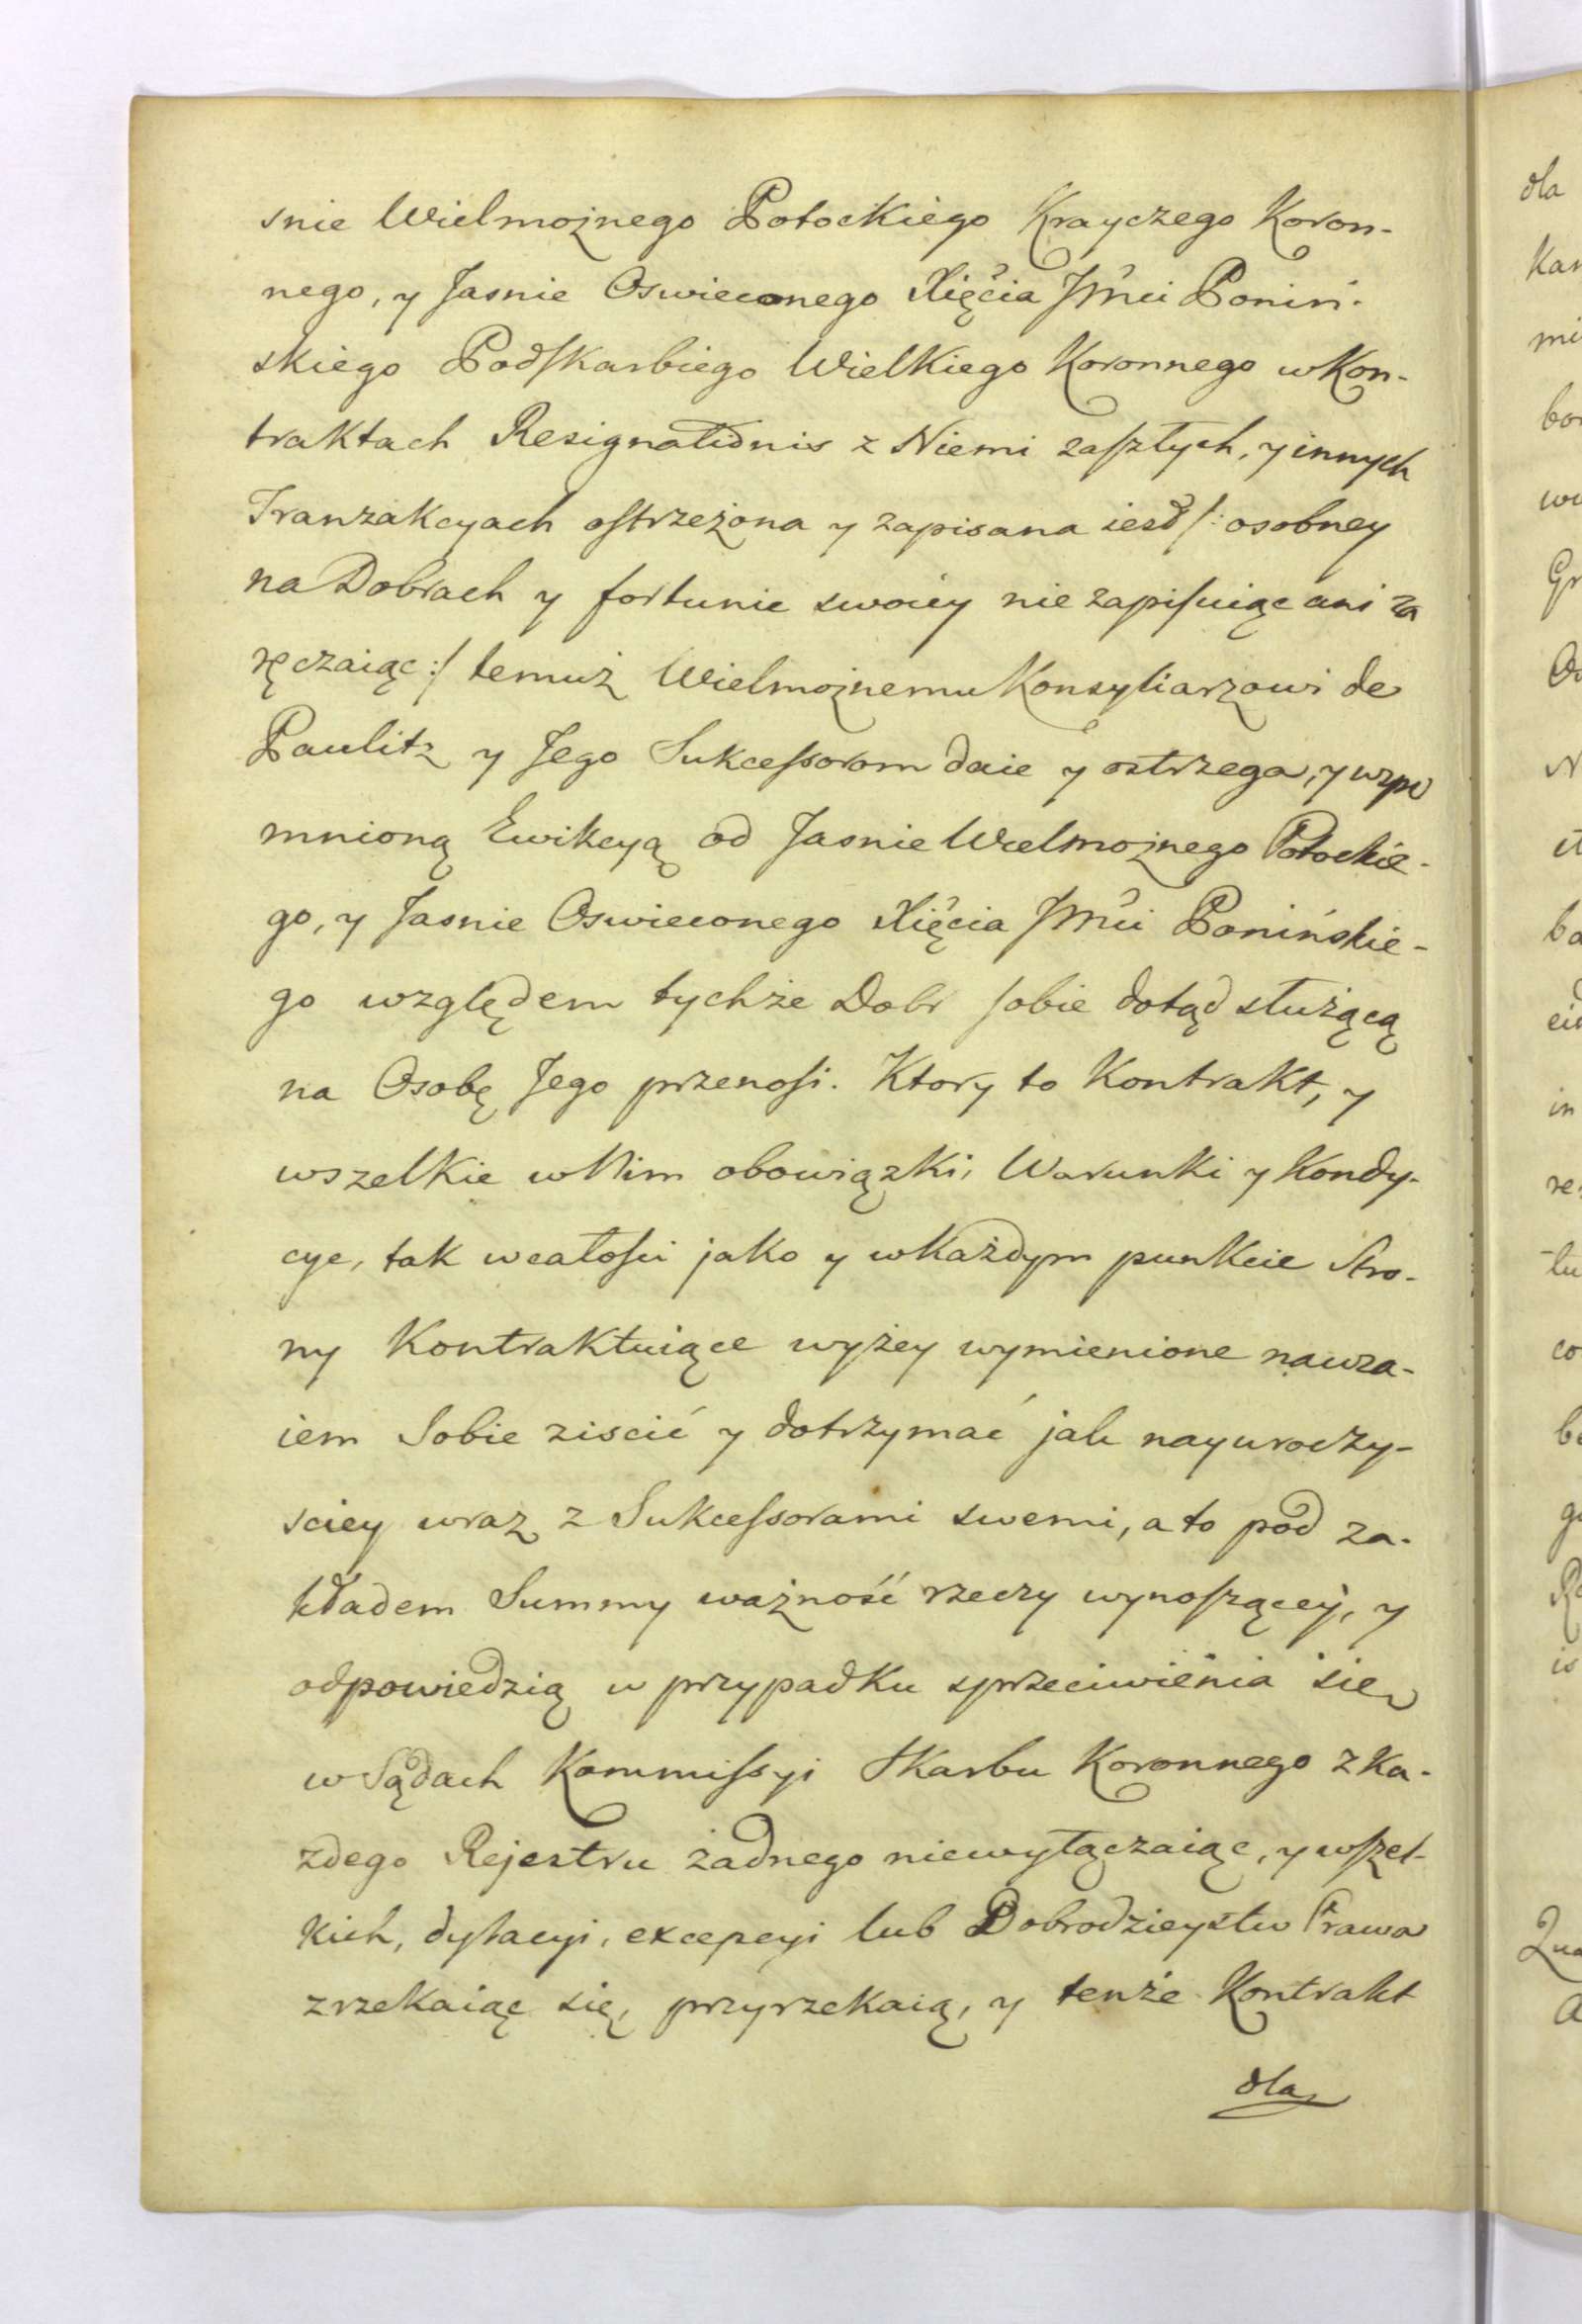 snie Wielmożnego Potockiego Krayczego Koron-
nego, y Jasnie Oswieconego Xięcia Jmci Poniń-
skiego Podskarbiego Wielkiego Koronnego w Kon-
traktach Resignationis z Niemi zaszłych, y innych
Tranzakcyach ostrzeżona y zapisana iest /: osobney
na Dobrach y fortunie swoiey nie zapisuiąc ani za
ręczaiąc :/ temuż Wielmożnemu Konsyliarzowi de
Paulitz y Jego Sukcessorom daie y ostrzega, y wspo
mnioną Ewikcyą od Jasnie Wielmożnego Potockie-
go, y Jasnie Oswieconego Xięcia Jmci Ponińskie-
go względem tychże Dobr sobie dotąd służącą
na Osobę Jego przenosi. Ktory to Kontrakt, y
wszelkie w Nim obowiązki, Warunki y Kondy-
cye, tak w całosci jako y w każdym punkcie Stro-
ny Kontraktuiące wyżey wymienione nawza-
iem Sobie ziscić y dotrzymać jak nayuroczy-
sciey wraz z Sukcessorami swemi, a to pod za-
kładem Summy ważność rzeczy wynoszącey, y
odpowiedzią w przypadku sprzeciwienia się
w Sądach Kommissyi Skarbu Koronnego z Ka-
zdego Rejestru żadnego niewyłączaiąc, y wszel-
kich, dylacyi, excepcyi lub Dobrodzieystw Prawa
zrzekaiąc się, przyrzekaią, y tenże Kontrakt
dla